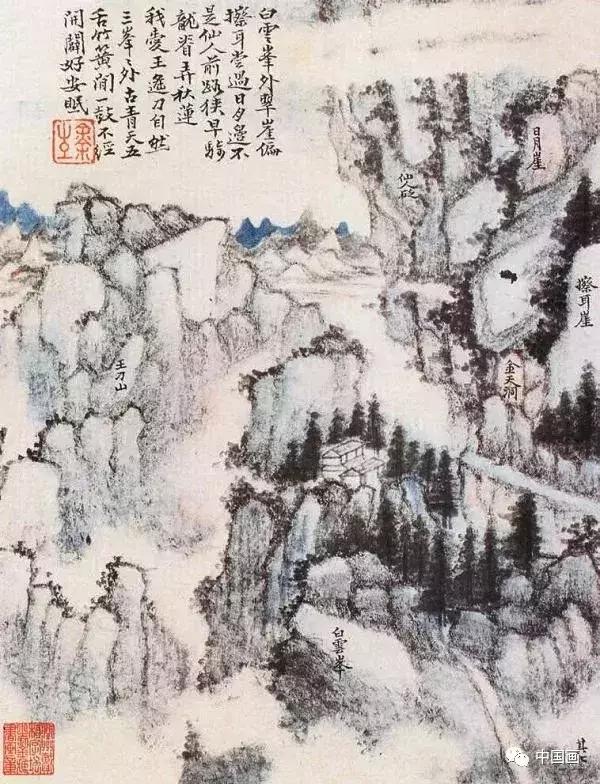 白雲峯外翠崖偏
擦耳過日夕邊不
是仙人前路狹早騎
龍脊弄秋蓮
我愛王刀自然
三峯之外古青天五
舌竹簧間一鼓不經
開闢好安眠
日月崖
仙人砭
擦耳崖
金天洞
王刀山
白雲峯
其七
中国画